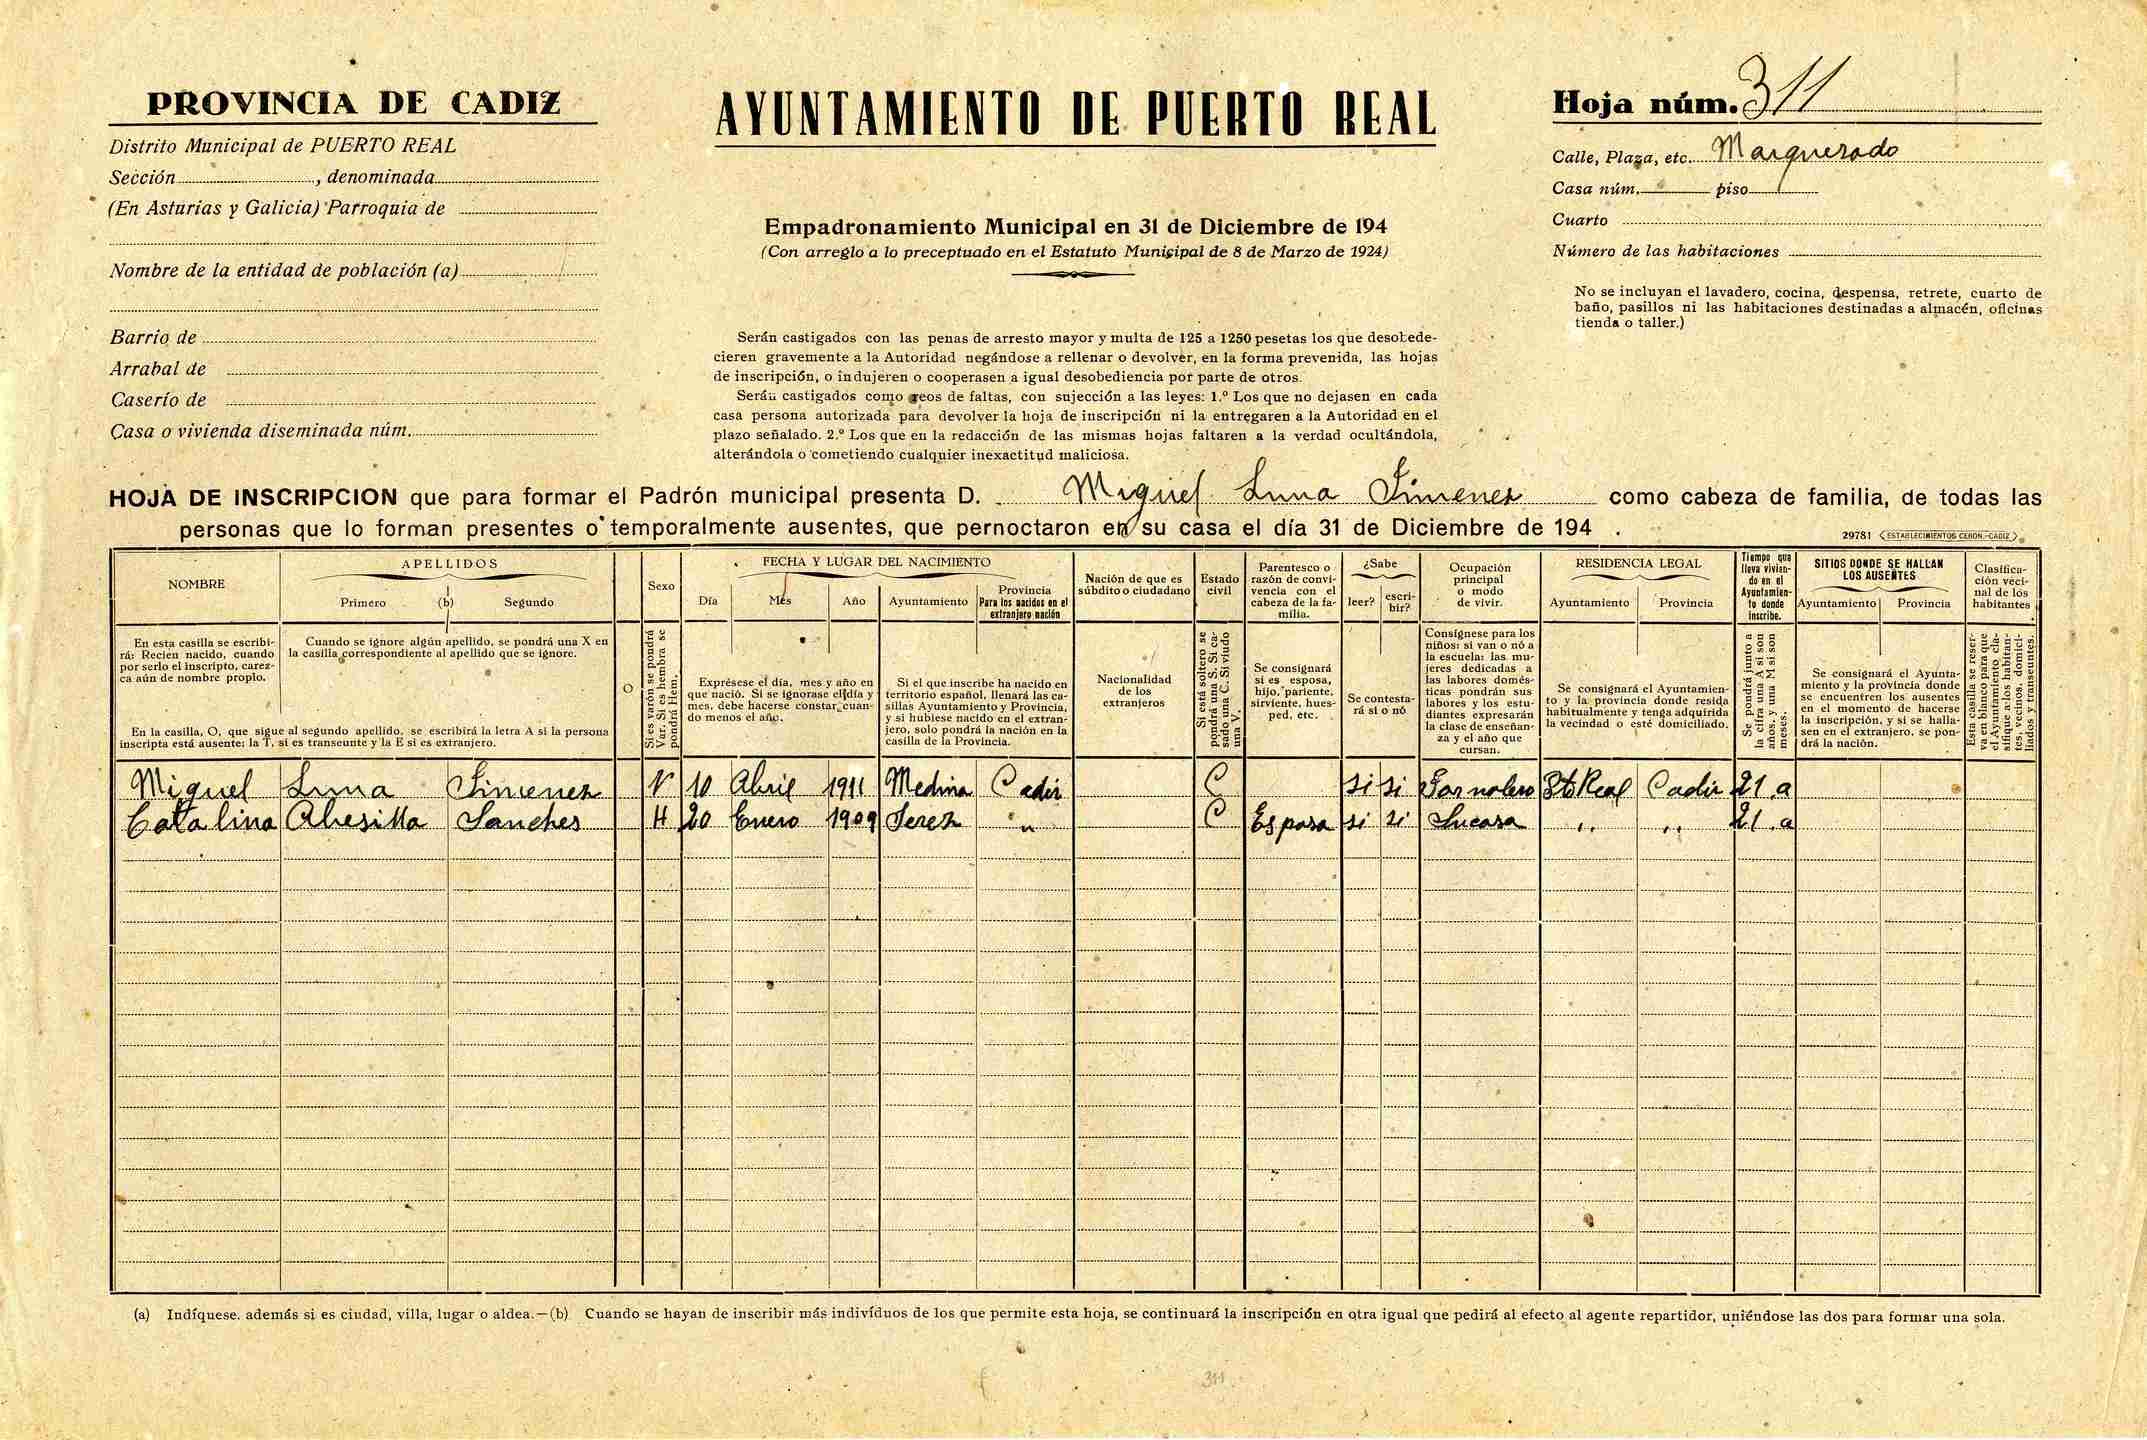 PROVINCIA DE CADIZ
Distrito Municipal de PUERTO REAL
Sección, denominada
(En Asturias y Galicia) Parroquia de
Nombre de la entidad de población (a)
Barrio de
Arrabal de
Caserío de
Casa o vivienda diseminada núm.
AYUNTAMIENTO DE PUERTO REAL
Empadronamiento Municipal en 31 de Diciembre de 194
(Con arreglo a lo preceptuado en el Estatuto Municipal de 8 de Marzo de 1924)
Serán castigados con las penas de arresto mayor y multa de 125 a 1250 pesetas los que desobede-
cieren gravemente a la Autoridad negándose a rellenar o devolver, en la forma prevenida, las hojas
de inscripción, o indujeren o cooperasen a igual desobediencia por parte de otros.
Serán castigados como reos de faltas, con sujección a las leyes: 1.º Los que no dejasen en cada
casa persona autorizada para devolver la hoja de inscripción ni la entregaren a la Autoridad en el
plazo señalado. 2.º Los que en la redacción de las mismas hojas faltaren a la verdad ocultándola,
alterándola o cometiendo cualquier inexactitud maliciosa.
Hoja núm. 311
Calle, Plaza, etc. Marquesado
Casa núm. piso
Cuarto
Número de las habitaciones
No se incluyan el lavadero, cocina, despensa, retrete, cuarto de
baño, pasillos ni las habitaciones destinadas a almacén, oficinas
tienda o taller.)
HOJA DE INSCRIPCION que para formar el Padrón municipal presenta D. Miguel Luna Jimenez como cabeza de familia, de todas las
personas que lo forman presentes o temporalmente ausentes, que pernoctaron en su casa el día 31 de Diciembre de 194 .
29781 ESTABLECIMIENTOS CERON.-CADIZ
NOMBRE
APELLIDOS
Primero (b) Segundo
Sexo
FECHA Y LUGAR DEL NACIMIENTO
Día Mes Año Ayuntamiento
Provincia
Para los nacidos en el
extranjero nación
Nación de que es
súbdito o ciudadano
Estado
civil
Parentesco o
razón de convi-
vencia con el
cabeza de la fa-
milia.
¿Sabe
leer? escri-
bir?
Ocupación
principal
o modo
de vivir.
RESIDENCIA LEGAL
Ayuntamiento Provincia
Tiempo que
lleva vivien-
do en el
Ayuntamien-
to donde
inscribe.
SITIOS DONDE SE HALLAN
LOS AUSENTES
Ayuntamiento Provincia
Clasifica-
ción veci-
nal de los
habitantes
En esta casilla se escribi-
rá: Recien nacido, cuando
por serlo el inscripto, carez-
ca aún de nombre propio.
Cuando se ignore algún apellido, se pondrá una X en
la casilla correspondiente al apellido que se ignore.
En la casilla, O, que sigue al segundo apellido, se escribirá la letra A si la persona
inscripta está ausente; la T, si es transeunte y la E si es extranjero.
O
Si es varón se pondrá
Var. Si es hembra se
pondrá Hem.
Exprésese el día, mes y año en
que nació. Si se ignorase el día y
mes, debe hacerse constar cuan-
do menos el año.
Si el que inscribe ha nacido en
territorio español, llenará las ca-
sillas Ayuntamiento y Provincia,
y si hubiese nacido en el extran-
jero, solo pondrá la nación en la
casilla de la Provincia.
Nacionalidad
de los
extranjeros
Si está soltero se
pondrá una S. Si ca-
sado una C. Si viudo
una V.
Se consignará
si es esposa,
hijo, pariente,
sirviente, hues-
ped, etc.
Se contesta-
rá si o nó
Consígnese para los
niños: si van o nó a
la escuela: las mu-
jeres dedicadas a
las labores domés-
ticas pondrán sus
labores y los estu-
diantes expresarán
la clase de enseñan-
za y el año que
cursan.
Se consignará el Ayuntamien-
to y la provincia donde resida
habitualmente y tenga adquirida
la vecindad o esté domiciliado.
Se pondrá junto a
la cifra una A si son
años, y una M si son
meses.
Se consignará el Ayunta-
miento y la provincia donde
se encuentren los ausentes
en el momento de hacerse
la inscripción, y si se halla-
sen en el extranjero, se pon-
drá la nación.
Esta casilla se reser-
va en blanco para que
el Ayuntamiento cla-
sifique a los habitan-
tes, vecinos, domici-
liados y transeuntes.
Miguel Luna Jimenez V 10 Abril 1911 Medina Cadiz C si si Jornalero Pto Real Cadiz 21 a
Catalina Sanches H 20 Enero 1909 Jerez " C Esposa si si Sucasa " " 21 a
(a) Indíquese, además si es ciudad, villa, lugar o aldea.—(b) Cuando se hayan de inscribir más indivíduos de los que permite esta hoja, se continuará la inscripción en otra igual que pedirá al efecto al agente repartidor, uniéndose las dos para formar una sola.
311